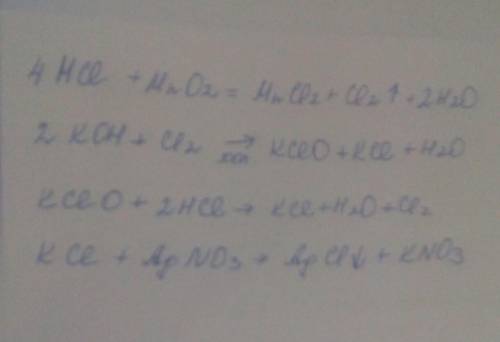 4 HCl + MnO2 = MnCl2 + Cl2↑ + 2H2O
2 KOH + Cl2 → хол KClO + KCl + H2O
KClO + 2HCl → KCl + H2O + Cl2
KCl + AgNO3 → AgCl↓ + KNO3